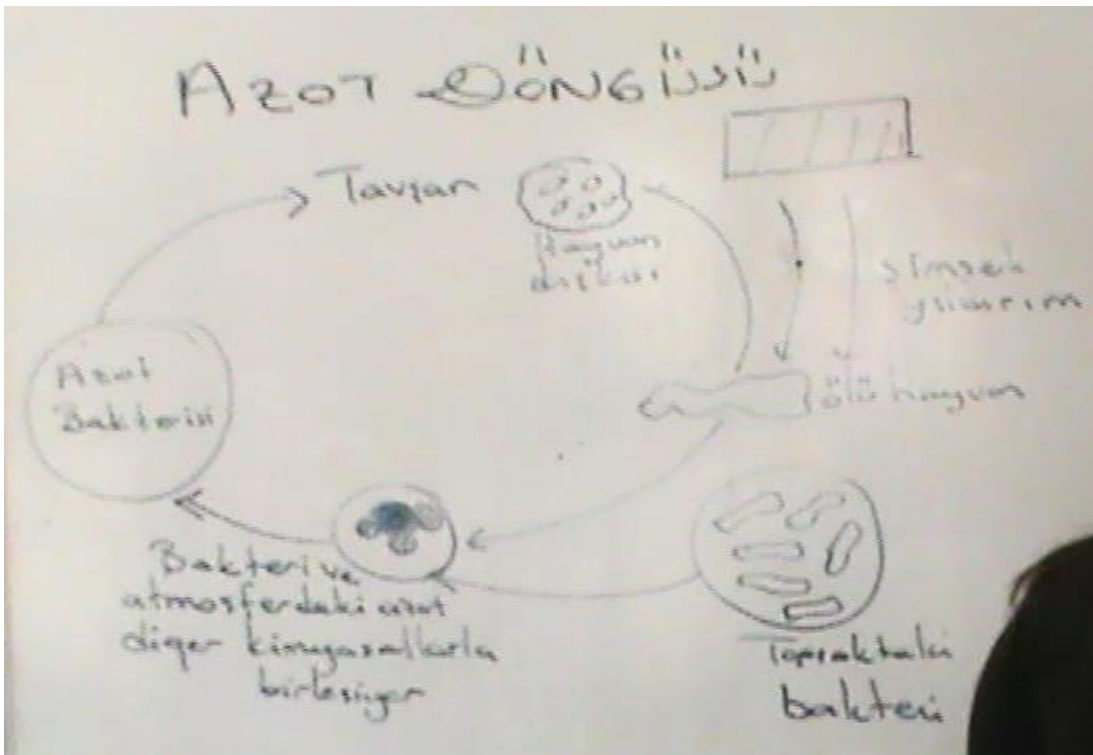 AZOT DÖNGÜSÜ
Tavşan
Hayvan
dışkısı
şimşek
yıldırım
Azot
Bakterisi
ölü hayvan
Bakteri ve
atmosferdaki azot
diğer kimyasallarla
birleşiyor
Topraktaki
bakteri